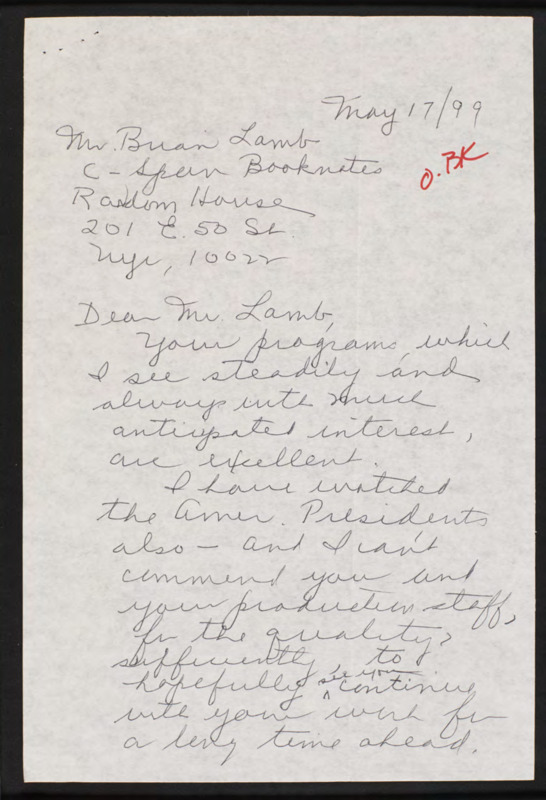 May 17/99
Mr. Brian Lamb
C-Span Booknotes
O.BK
Random House
201 E. 50 St.
Nyc, 10022
Dear Mr. Lamb,
Your programs, which
I see steadily and
always with much
anticipated interest,
are excellent.
I have watched
the Amer. Presidents
also – and I can't
commend you and
your production staff,
for the quality,
sufficiently to
hopefully see you continue
with your work for
a long time ahead.